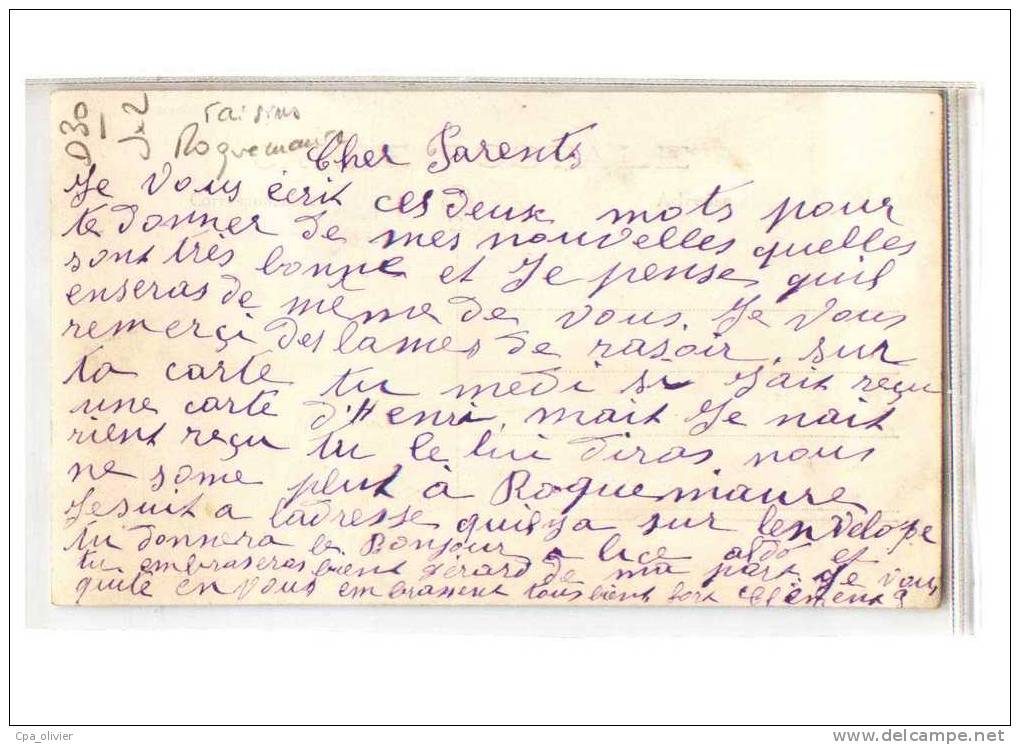 D30
Jx2
raisins
Roquemaure
Cher Parents
Je Vous écrit ces deux mots pour
te donner de mes nouvelles quelles
sont très bonne et Je pense quil
enseras de même de vous. Je Vous
remerçi des lames de rasoir, sur
ta carte tu me di si Jait reçu
une carte d'Henri, mait Je nait
rient reçu tu le lui diras nous
ne some plut à Roquemaure
Je suit a ladresse quilya sur lenvelope
tu donnera le Bonjour a lice aldo et
tu embraseras bient gérard de ma part. Je vous
quite en vous embrassent tous bient fort Clément
www.delcampe.net
Cpa_olivier